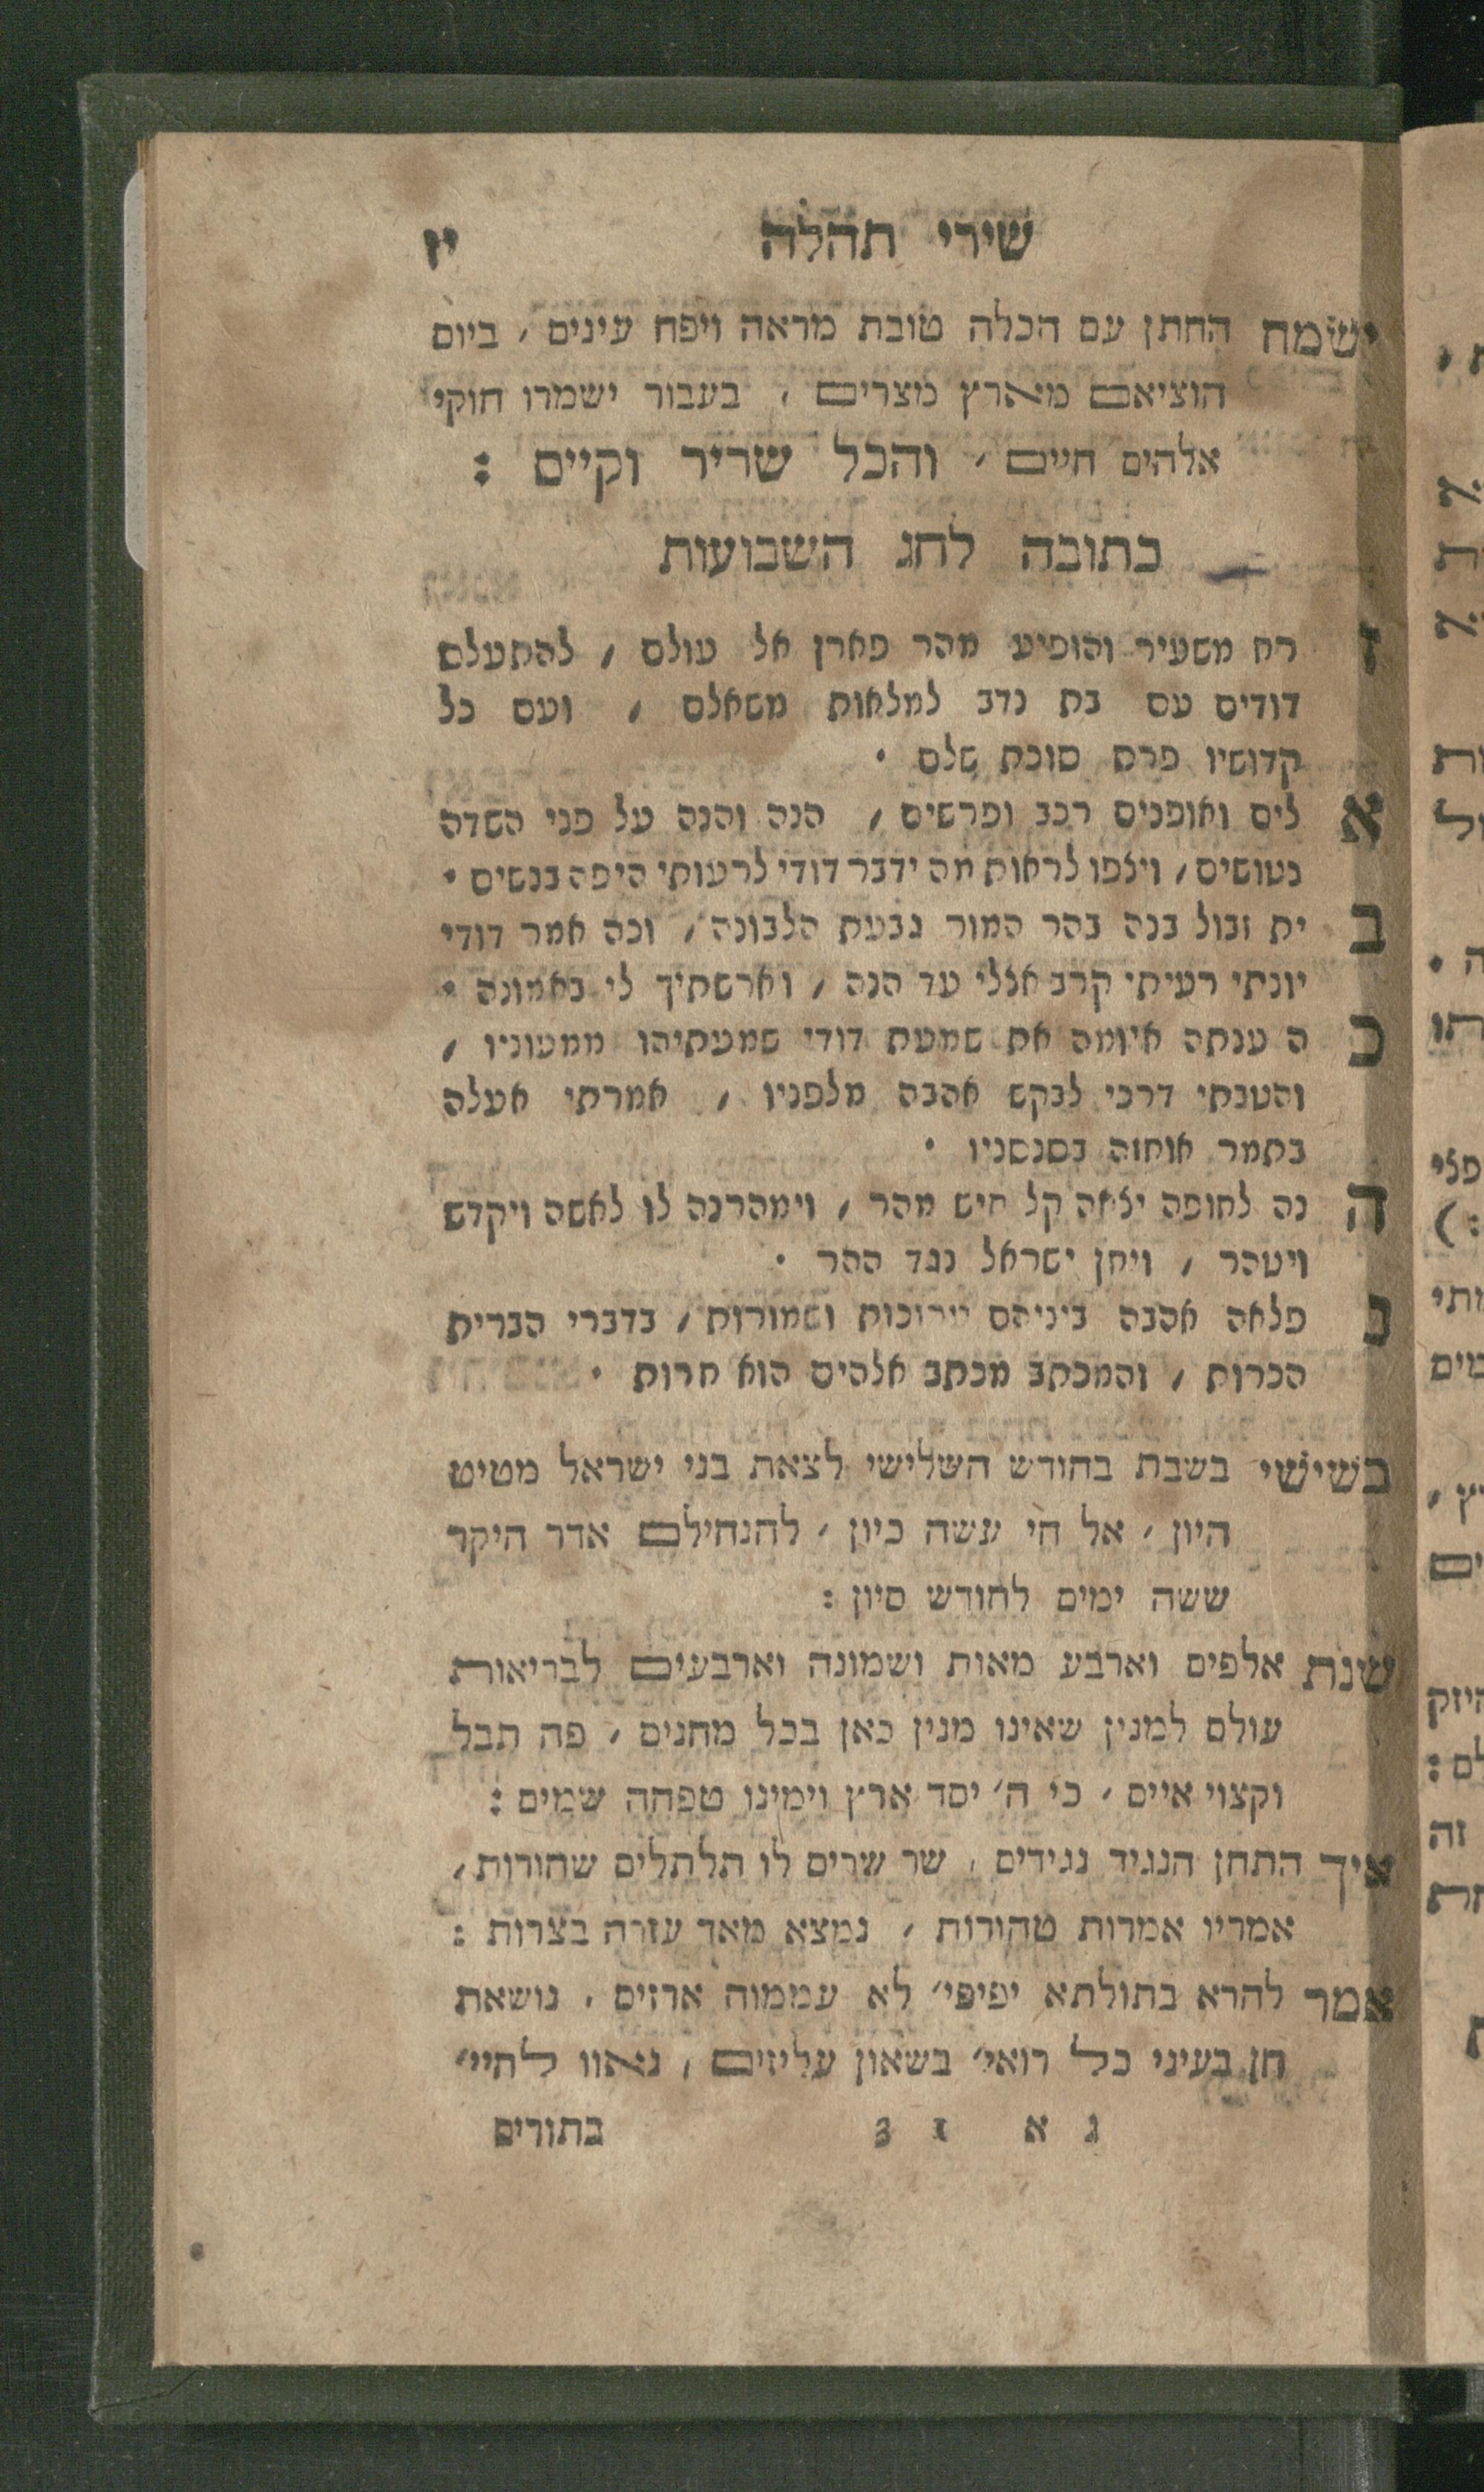 שירי תהלה יז
ישמח החתן עם הכלה טובת מראה ויפח עינים, ביום
הוציאם מארץ מצרים, בעבור ישמרו חוקי
אלהים חיים, והכל שריר וקיים:
כתובה לחג השבועות
זרח משעיר והופיע מהר פארן אל עולם, להתעלם
דודים עם בת נדב למלאות משאלם, ועם כל
קדושיו פרס סוכת שלם.
אלים ואופנים רכב ופרשים, הנה והנה על פני השדה
נטושים, ויצפו לראות מה ידבר דודי לרעותי היפה בנשים.
בית זבול בנה בהר המור גבעת הלבונה, וכה אמר דודי
יונתי רעיתי קרב אצלי עד הנה, וארשתיך לי באמונה.
כה ענתה איומה את שמעת דודי שמעתיהו ממעוניו,
והטבתי דרכי לבקש אהבה מלפניו, אמרתי אעלה
בתמר אוחזה בסנסניו.
הנה לחופה יצאה קל חיש מהר, וימהרנה לו לאשה ויקדש
ויטהר, ויחן ישראל נגד ההר.
נפלאה אהבה ביניהם ערוכות ושמורות, בדברי הברית
הכרות, והמכתב מכתב אלהים הוא חרות.
בשישי בשבת בחודש השלישי לצאת בני ישראל מטיט
היון, אל חי עשה כיון, להנחילם אדר היקר
ששה ימים לחודש סיון:
שנת אלפים וארבע מאות ושמונה וארבעים לבריאות
עולם למנין שאינו מנין כאן בכל מחנים, פה תבל
וקצוי איים, כי ה' יסד ארץ וימינו טפחה שמים:
איך התחן הנגיד נגידים, שר שרים לו תלתלים שחורות,
אמריו אמרות טהורות, נמצא מאד עזרה בצרות:
אמר להרא בתולתא יפיפי' לא עממוה ארזים, נושאת
חן בעיני כל רואי' בשאון עליזים, נאוו לחיי'
ג א 1 3 בתורים